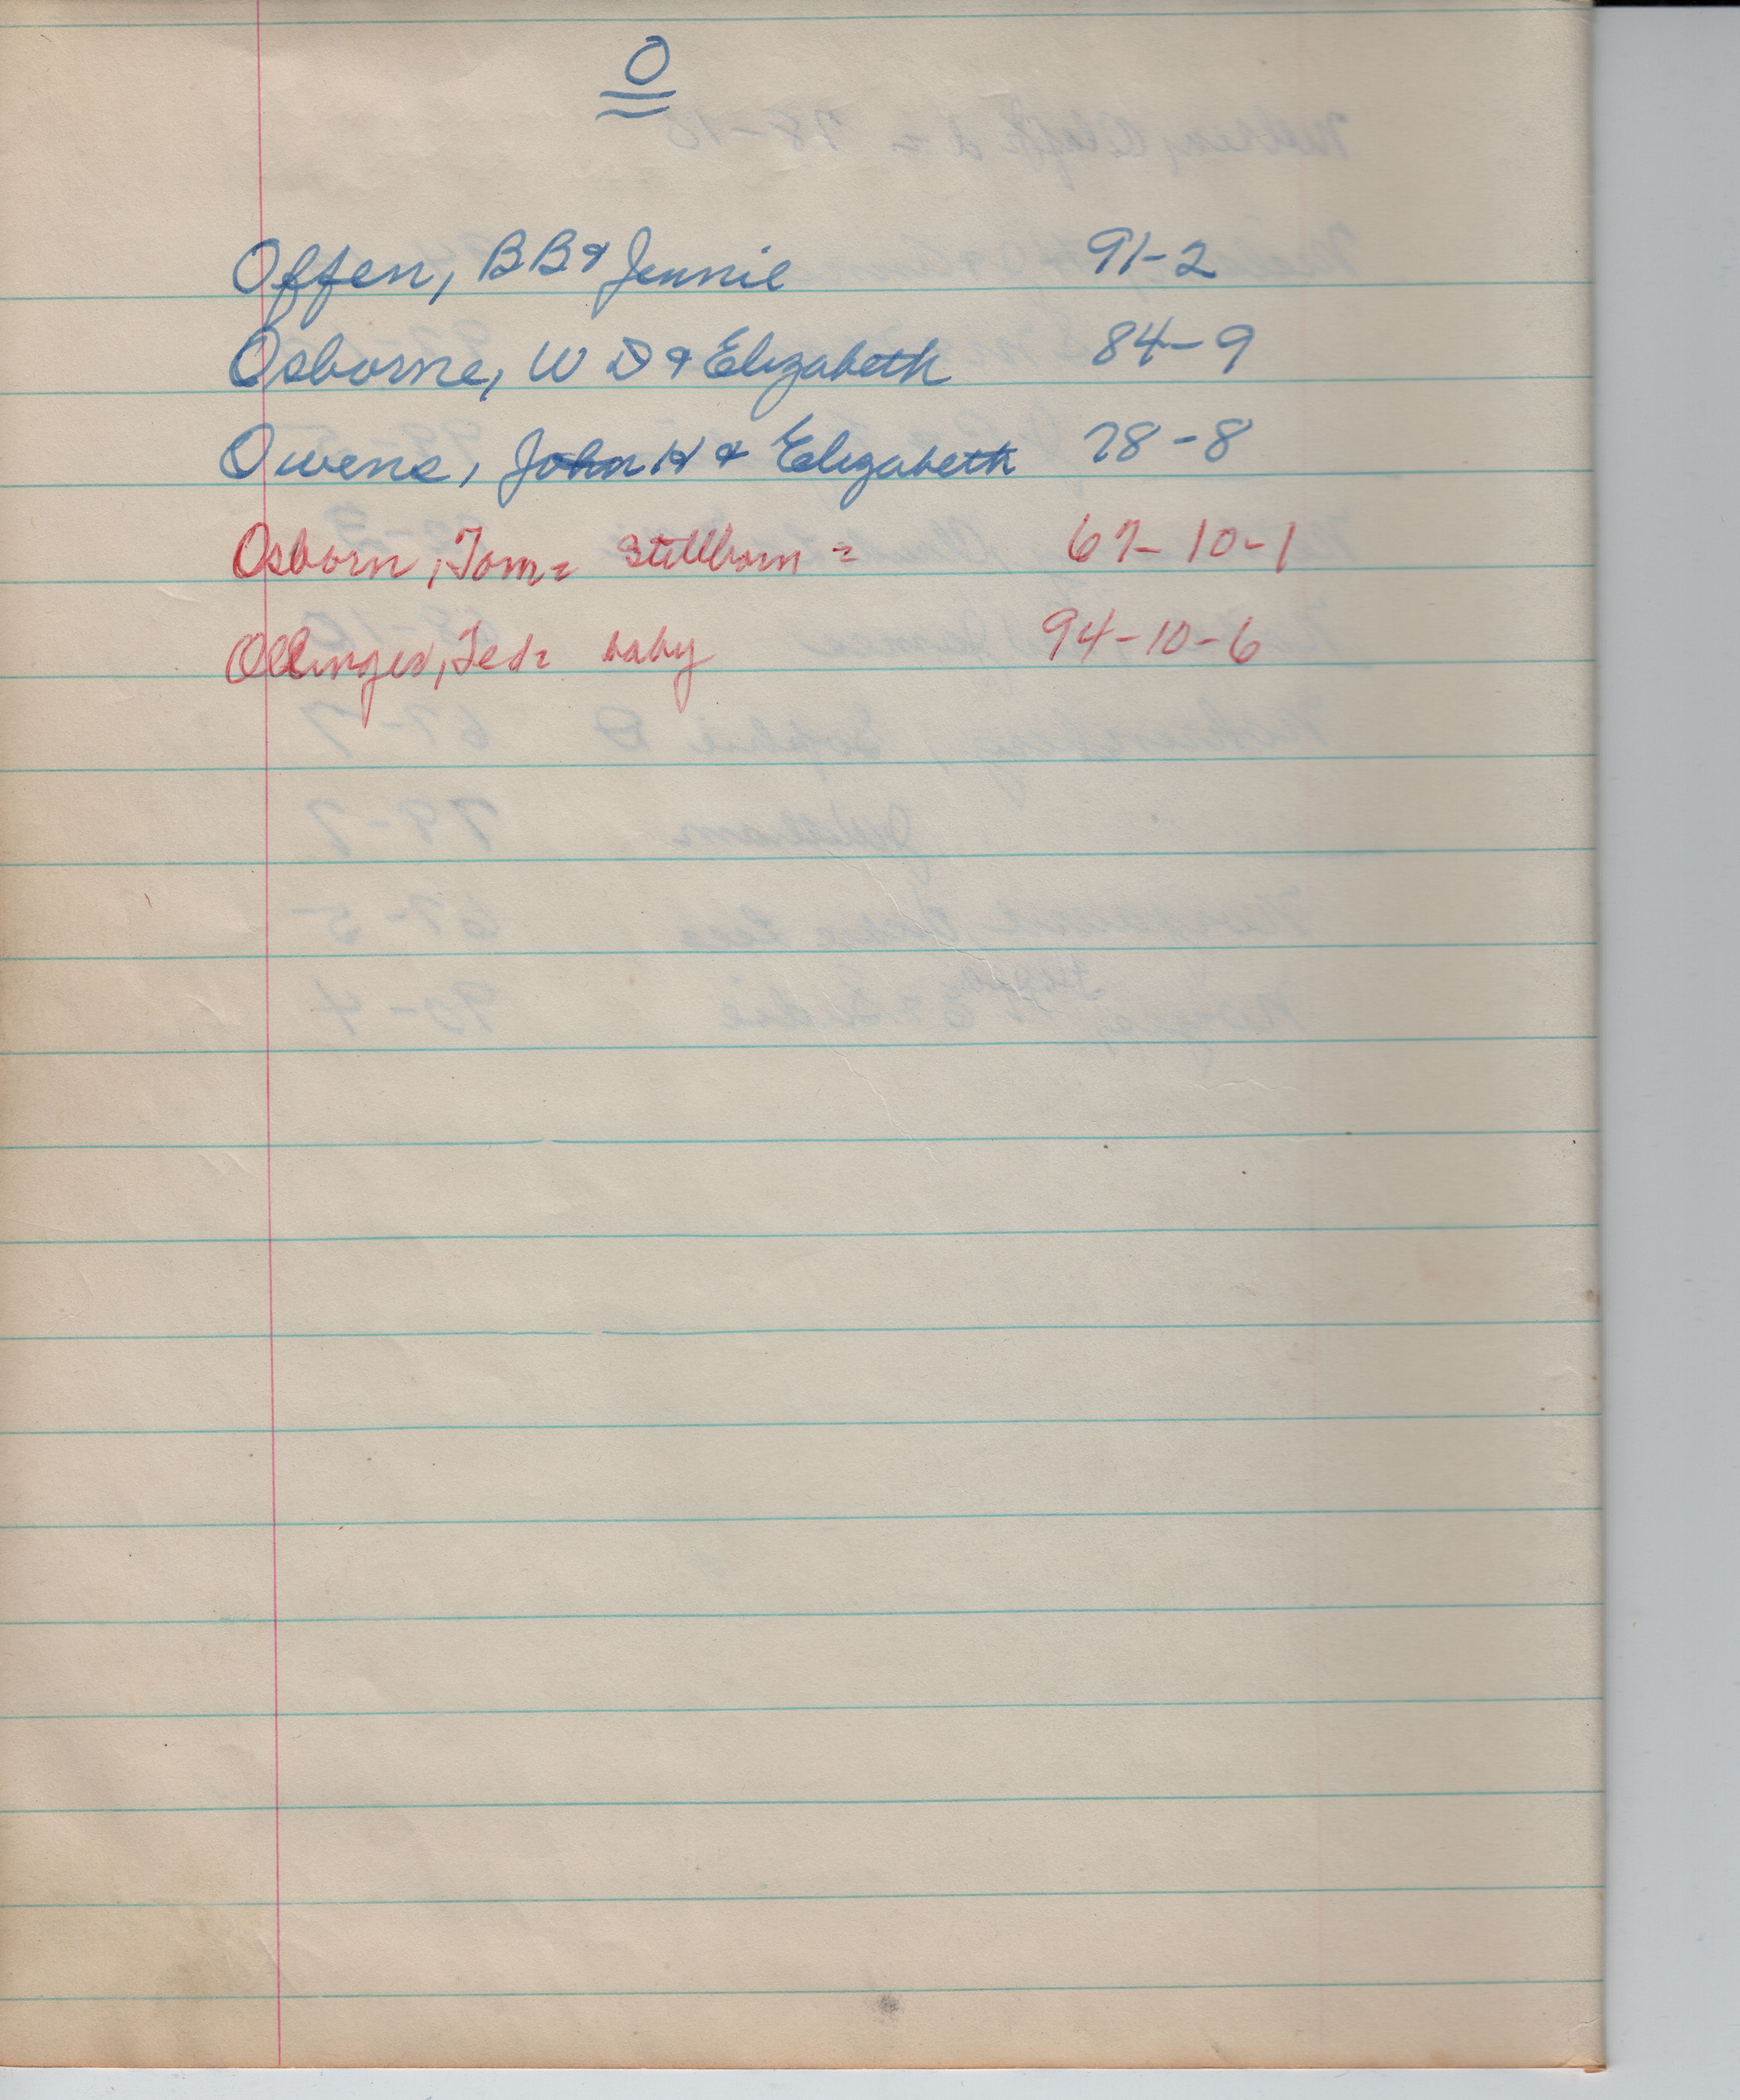 O
Offen, BB & Jennie 91-2
Osborne, W D & Elizabeth 84-9
Owens, John H & Elizabeth 78-8
Osborn, Tom = Stillborn = 67-10-1
Ollinger, Ted = baby 94-10-6